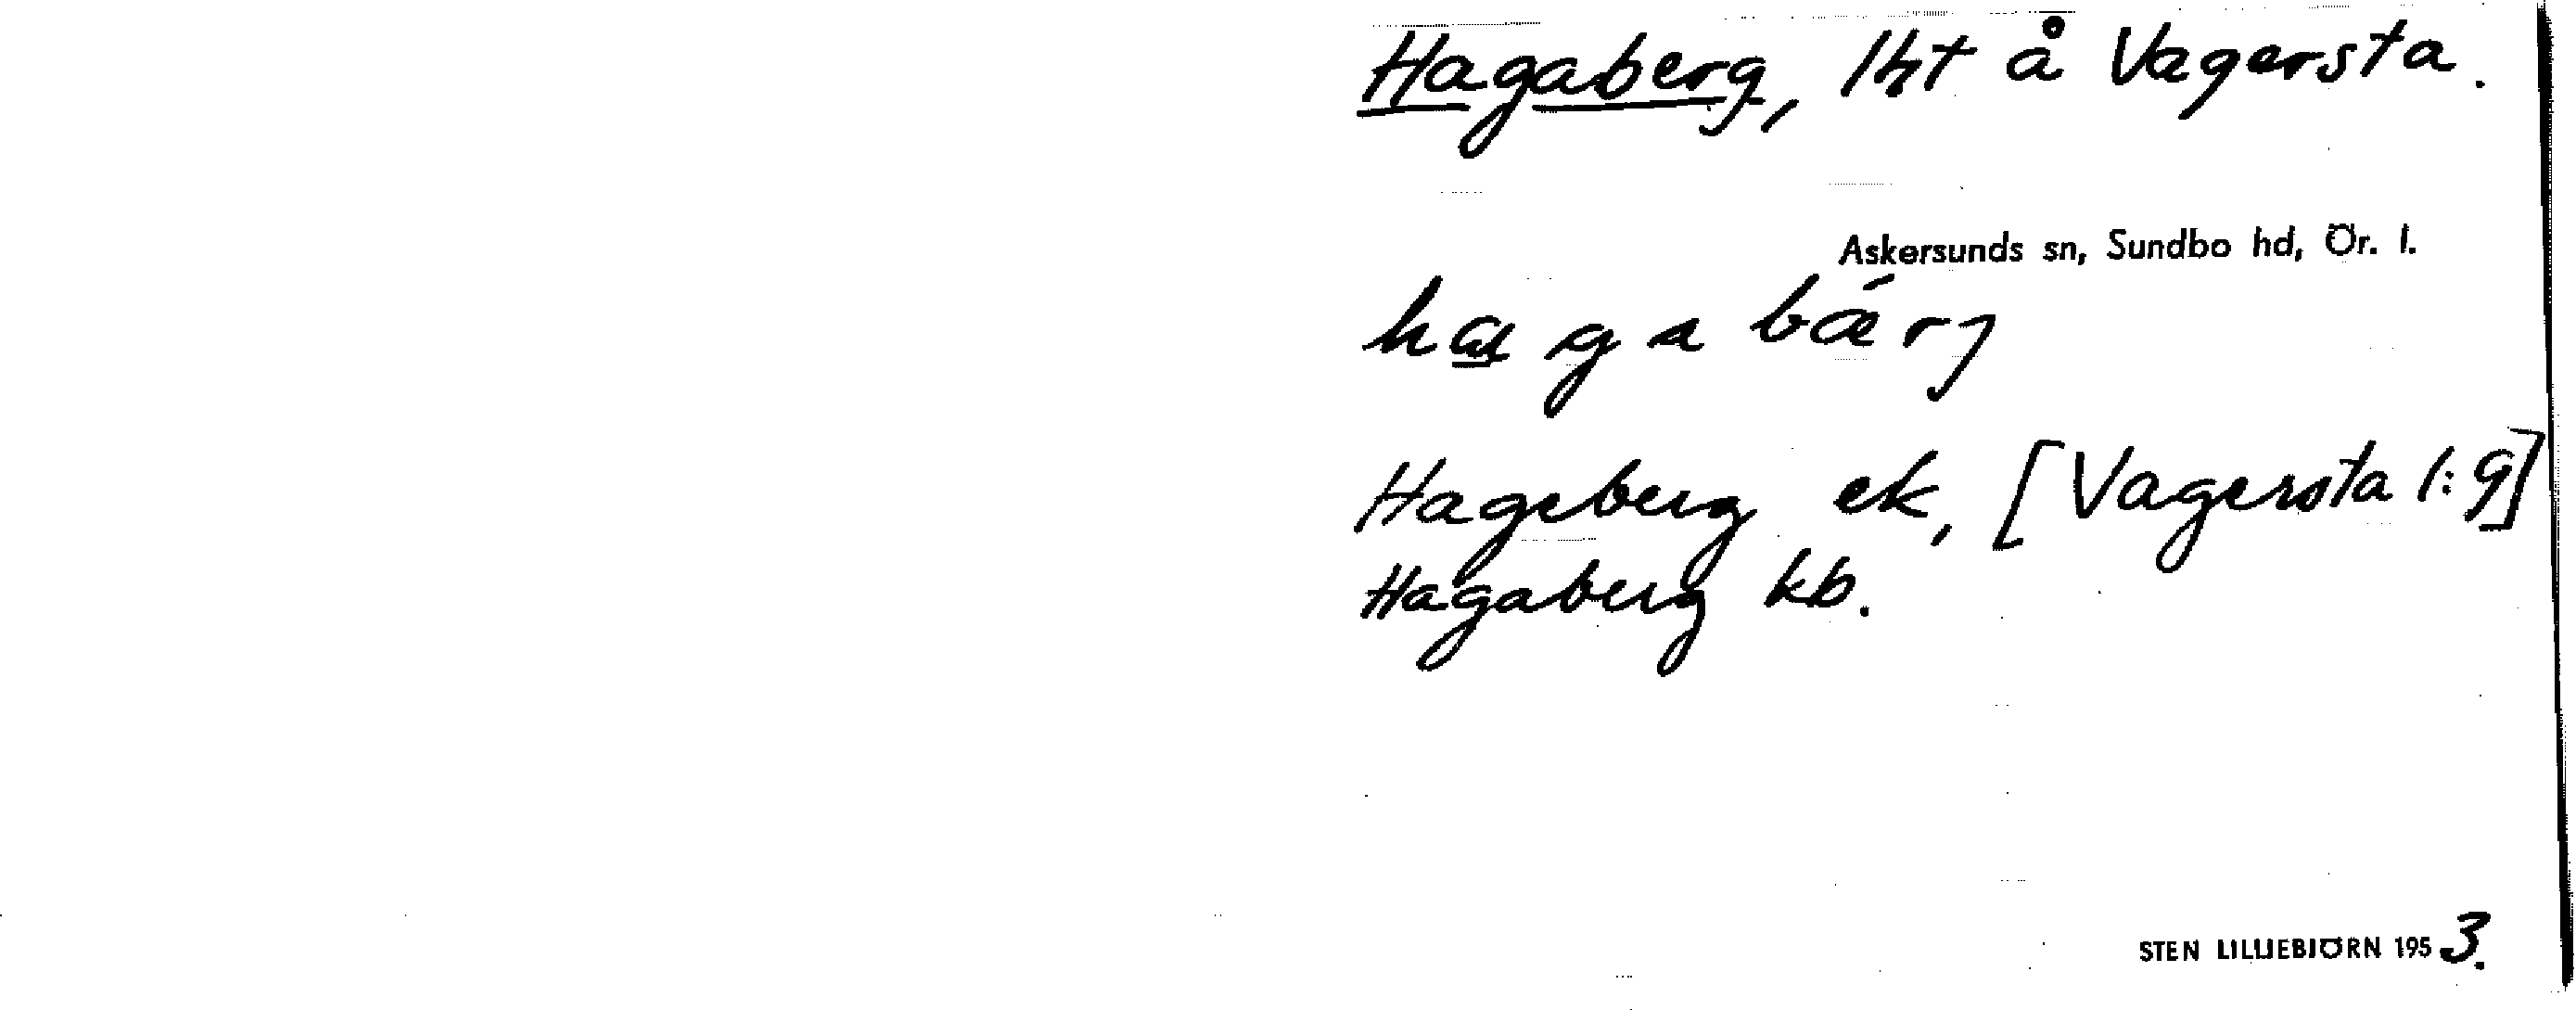 Hagaberg, lht å Vagersta.
Askersunds sn, Sundbo hd, Ör. l.
ha̲gabǽrj
Hageberg ek, [Vagersta 1:9]
Hagaberg kb.
STEN LILLIEBJÖRN 1953.